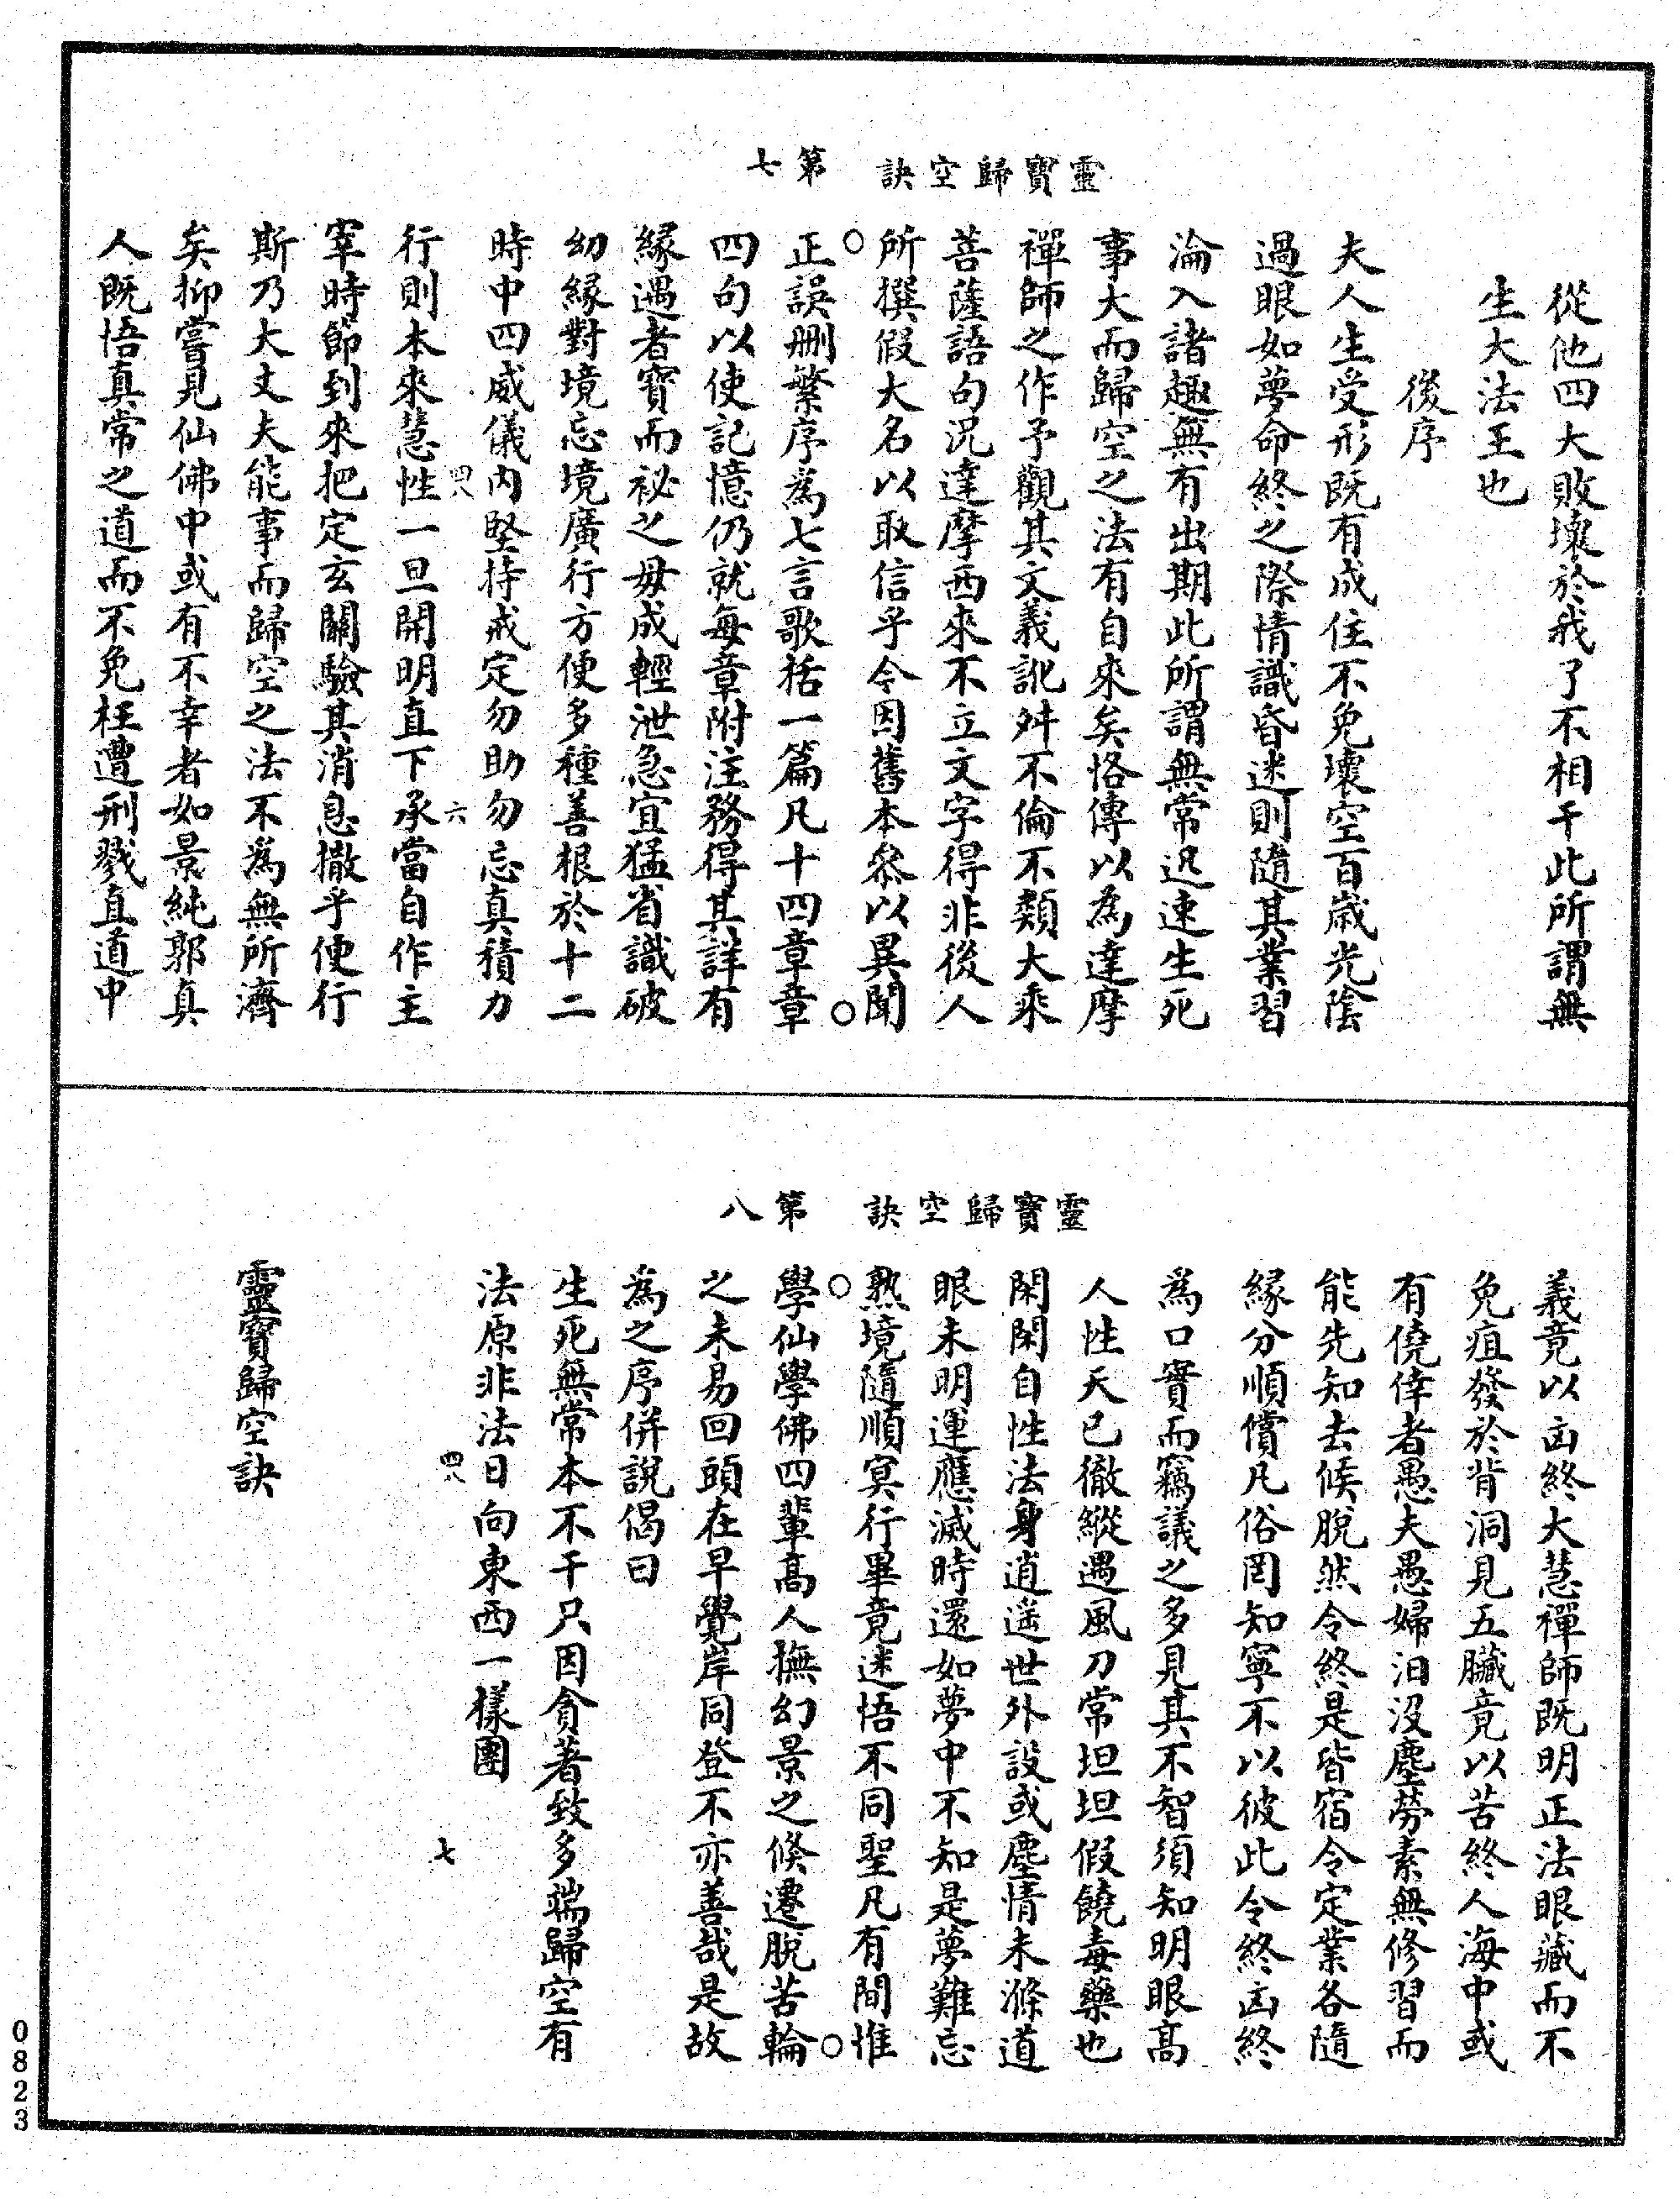 靈寶歸空訣　第七
從他四大敗壞於我了不相干此所謂無
生大法王也
後序
夫人生受形既有成住不免壞空百歲光陰
過眼如夢命終之際情識昏迷則隨其業習
淪入諸趣無有出期此所謂無常迅速生死
事大而歸空之法有自來矣恪傳以為達摩
禪師之作予觀其文義訛舛不倫不類大乘
菩薩語句況達摩西來不立文字得非後人
所撰假大名以取信乎令因舊本叅以異聞
正誤刪繁序為七言歌括一篇凡十四章章
四句以使記憶仍就每章附注務得其詳有
緣遇者寶而祕之毋成輕泄急宜猛省識破
幻緣對境忘境廣行方便多種善根於十二
時中四威儀內堅持戒定勿助勿忘真積力
四八　六
行則本來慧性一旦開明直下承當自作主
宰時節到來把定玄關驗其消息撒手便行
斯乃大丈夫能事而歸空之法不為無所濟
矣抑嘗見仙佛中或有不幸者如景純郭真
人既悟真常之道而不免枉遭刑戮直道中
靈寶歸空訣　第八
義竟以凶終大慧禪師既明正法眼藏而不
免疽發於背洞見五臟竟以苦終人海中或
有僥倖者愚夫愚婦汩沒塵勞素無修習而
能先知去候脫然令終是皆宿令定業各隨
緣分順償凡俗罔知寧不以彼此令終凶終
為口實而竊議之多見其不智須知明眼高
人性天已徹縱遇風刀常坦坦假饒毒藥也
閑閑自性法身逍遙世外設或塵情未滌道
眼未明運應滅時還如夢中不知是夢難忘
熟境隨順冥行畢竟迷悟不同聖凡有間惟
學仙學佛四輩高人撫幻景之倏遷脫苦輪
之未易回頭在早覺岸同登不亦善哉是故
為之序併說偈曰
生死無常本不干只因貪著致多端歸空有
法原非法日向東西一樣團
四八　七
靈寶歸空訣
0823